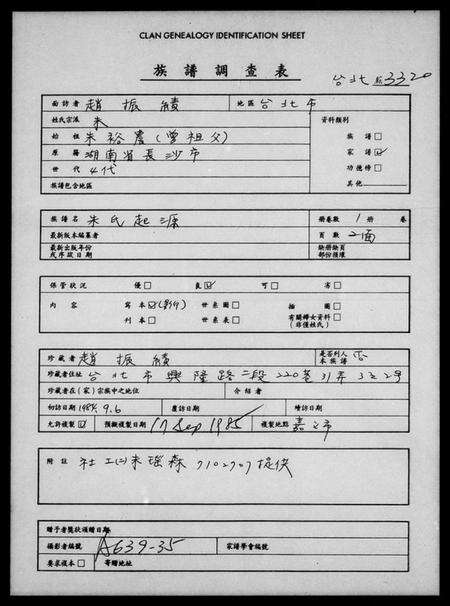 CLAN GENEALOGY IDENTIFICATION SHEET
族譜調查表
台北 3320
面訪者 趙振績 地區 台北市
姓氏宗派 朱 資料類別
始祖 朱裕農(曾祖父) 族譜 □
原籍 湖南省長沙市 家譜 ☑
世代 4代 功德榜 □
族譜包含地區 其他
族譜名 朱氏起源 冊卷數 1冊 卷
最新版本編纂者 頁數 2面
最新出版年份 缺冊缺頁
或序跋日期 部份損壞
保管狀況 優 □ 良 ☑ 可 □ 劣 □
內容 寫本 ☑(影印) 世系圖 □ 插圖 □
刊本 □ 世系表 □ 有關婦女資料 □
(非僅姓氏)
珍藏者 趙振績 是否列入本族譜 否
珍藏者住址 台北市興隆路二段220巷31弄322號
珍藏者在(家)宗族中之地位 介紹者
初訪日期 1984.9.6 覆訪日期 時訪日期
允許複製 ☑ 預擬複製日期 17 Sep 1985 複製地點 嘉市
附註 社工(二)朱瑤森 7102707提供
贈予者獎狀頒贈日期
攝影者編號 A639-35 家譜學會編號
要求複本 □ 寄贈地址